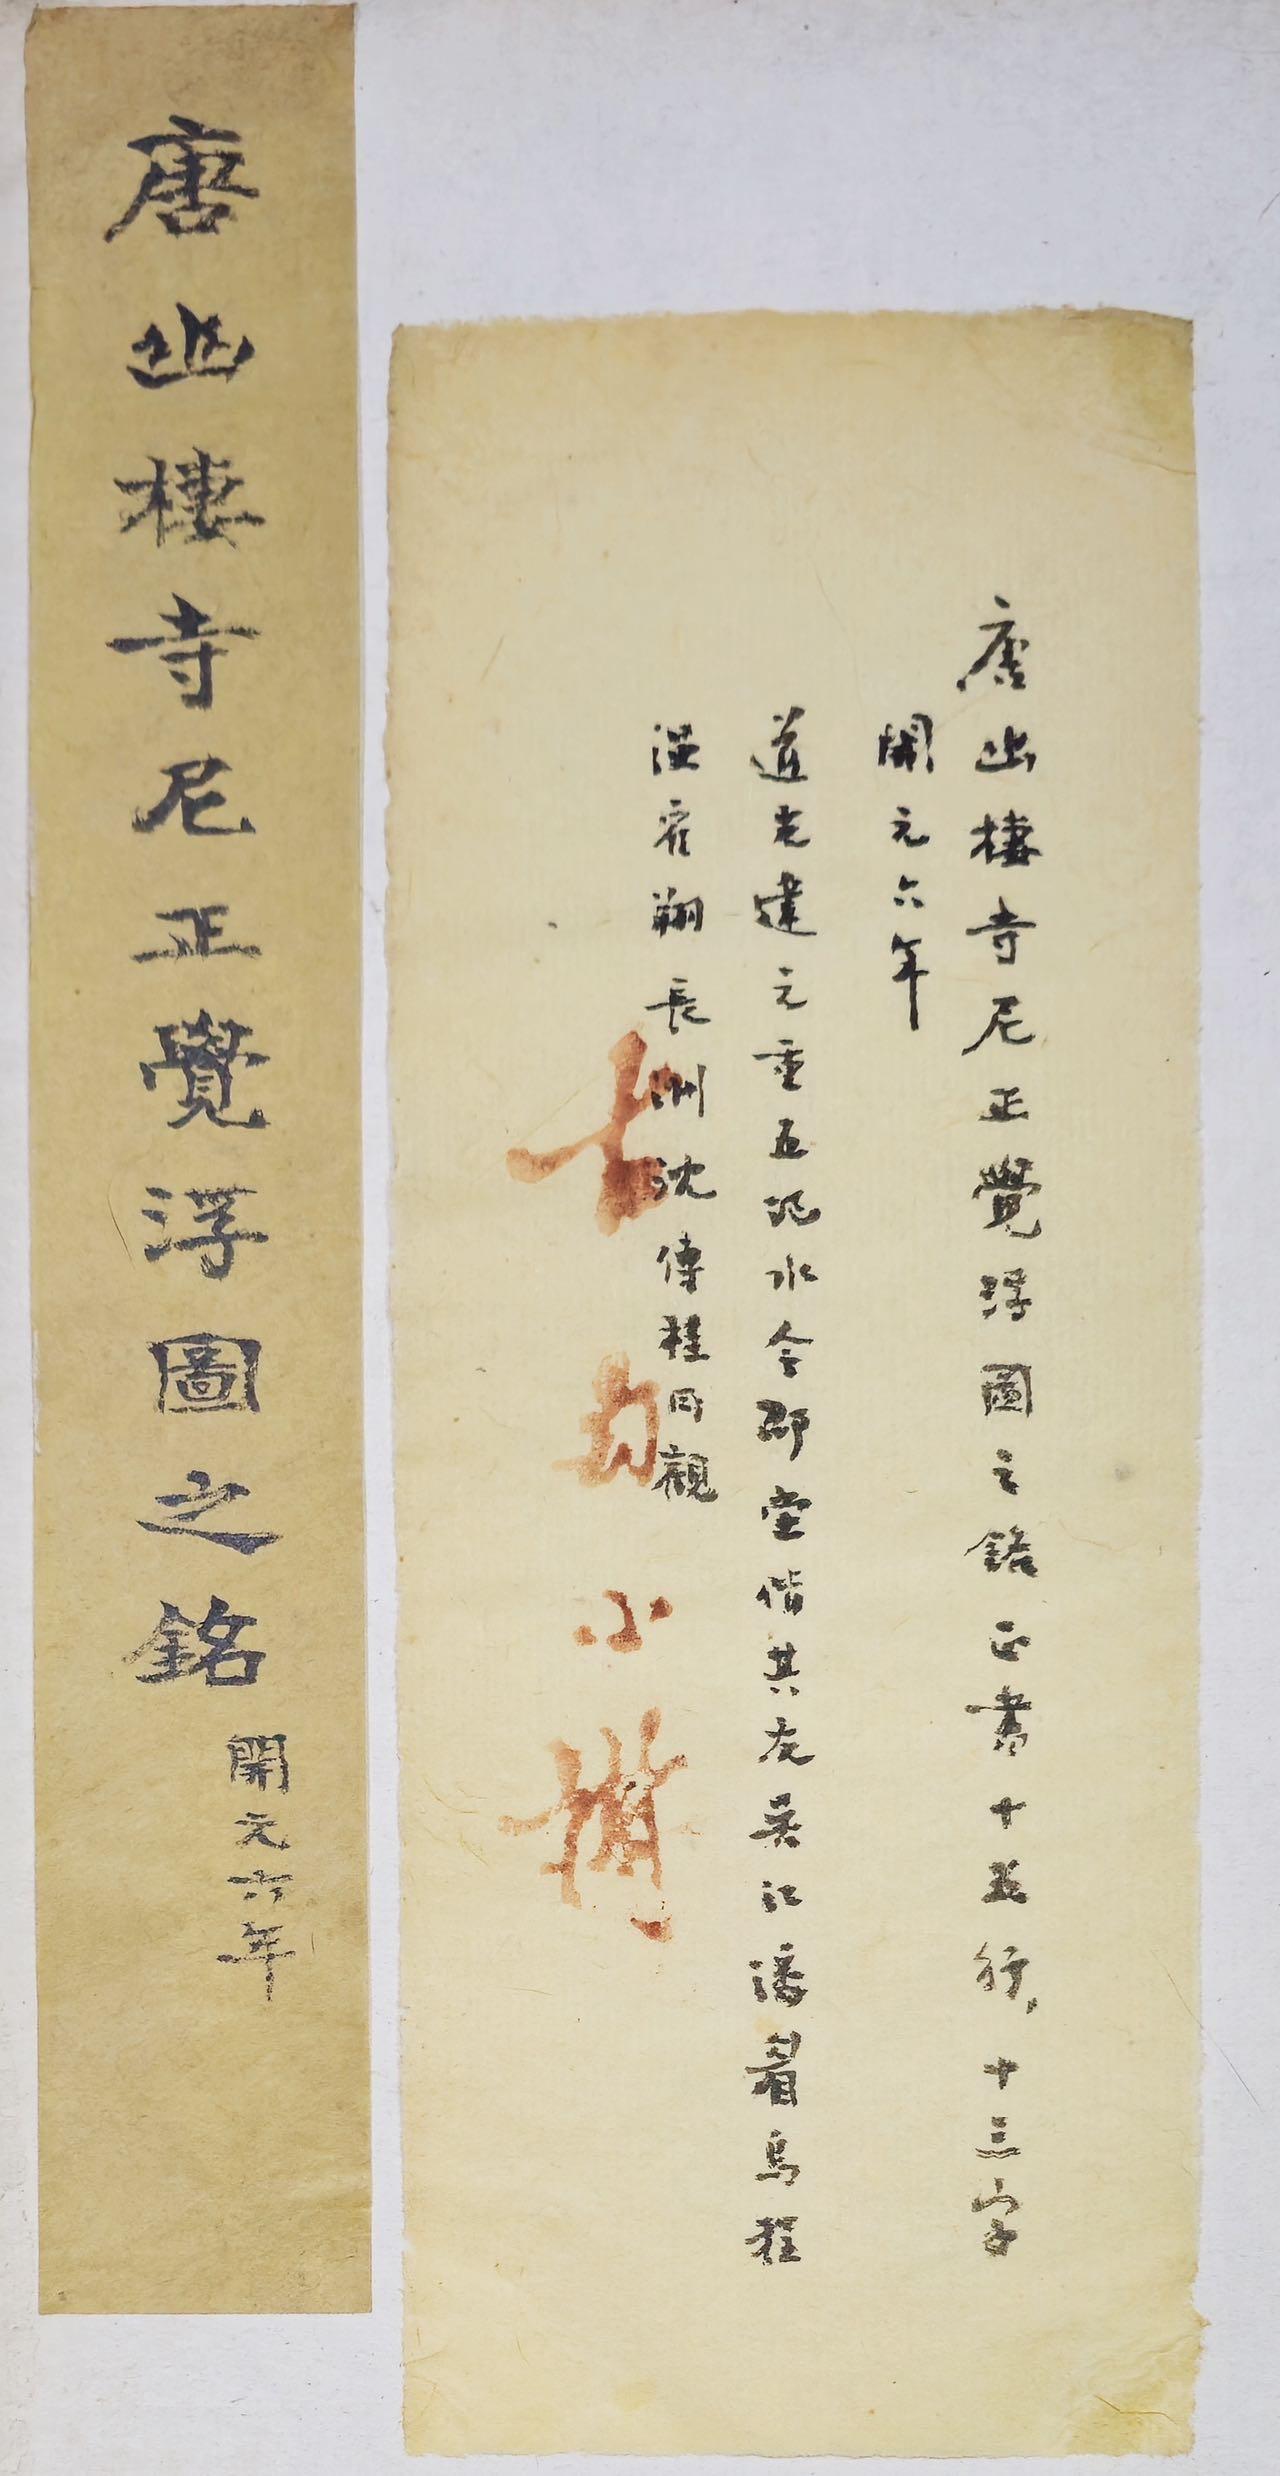 唐幽棲寺尼正覺浮圖之銘正書十五行,十三字
開元六年
道光建元重五汜水令邵堂偕其友吳江潘眉烏程
温霍翔長洲沈傳桂同觀
七  勻  小
唐幽棲寺尼正覺浮圖之銘
開元六年